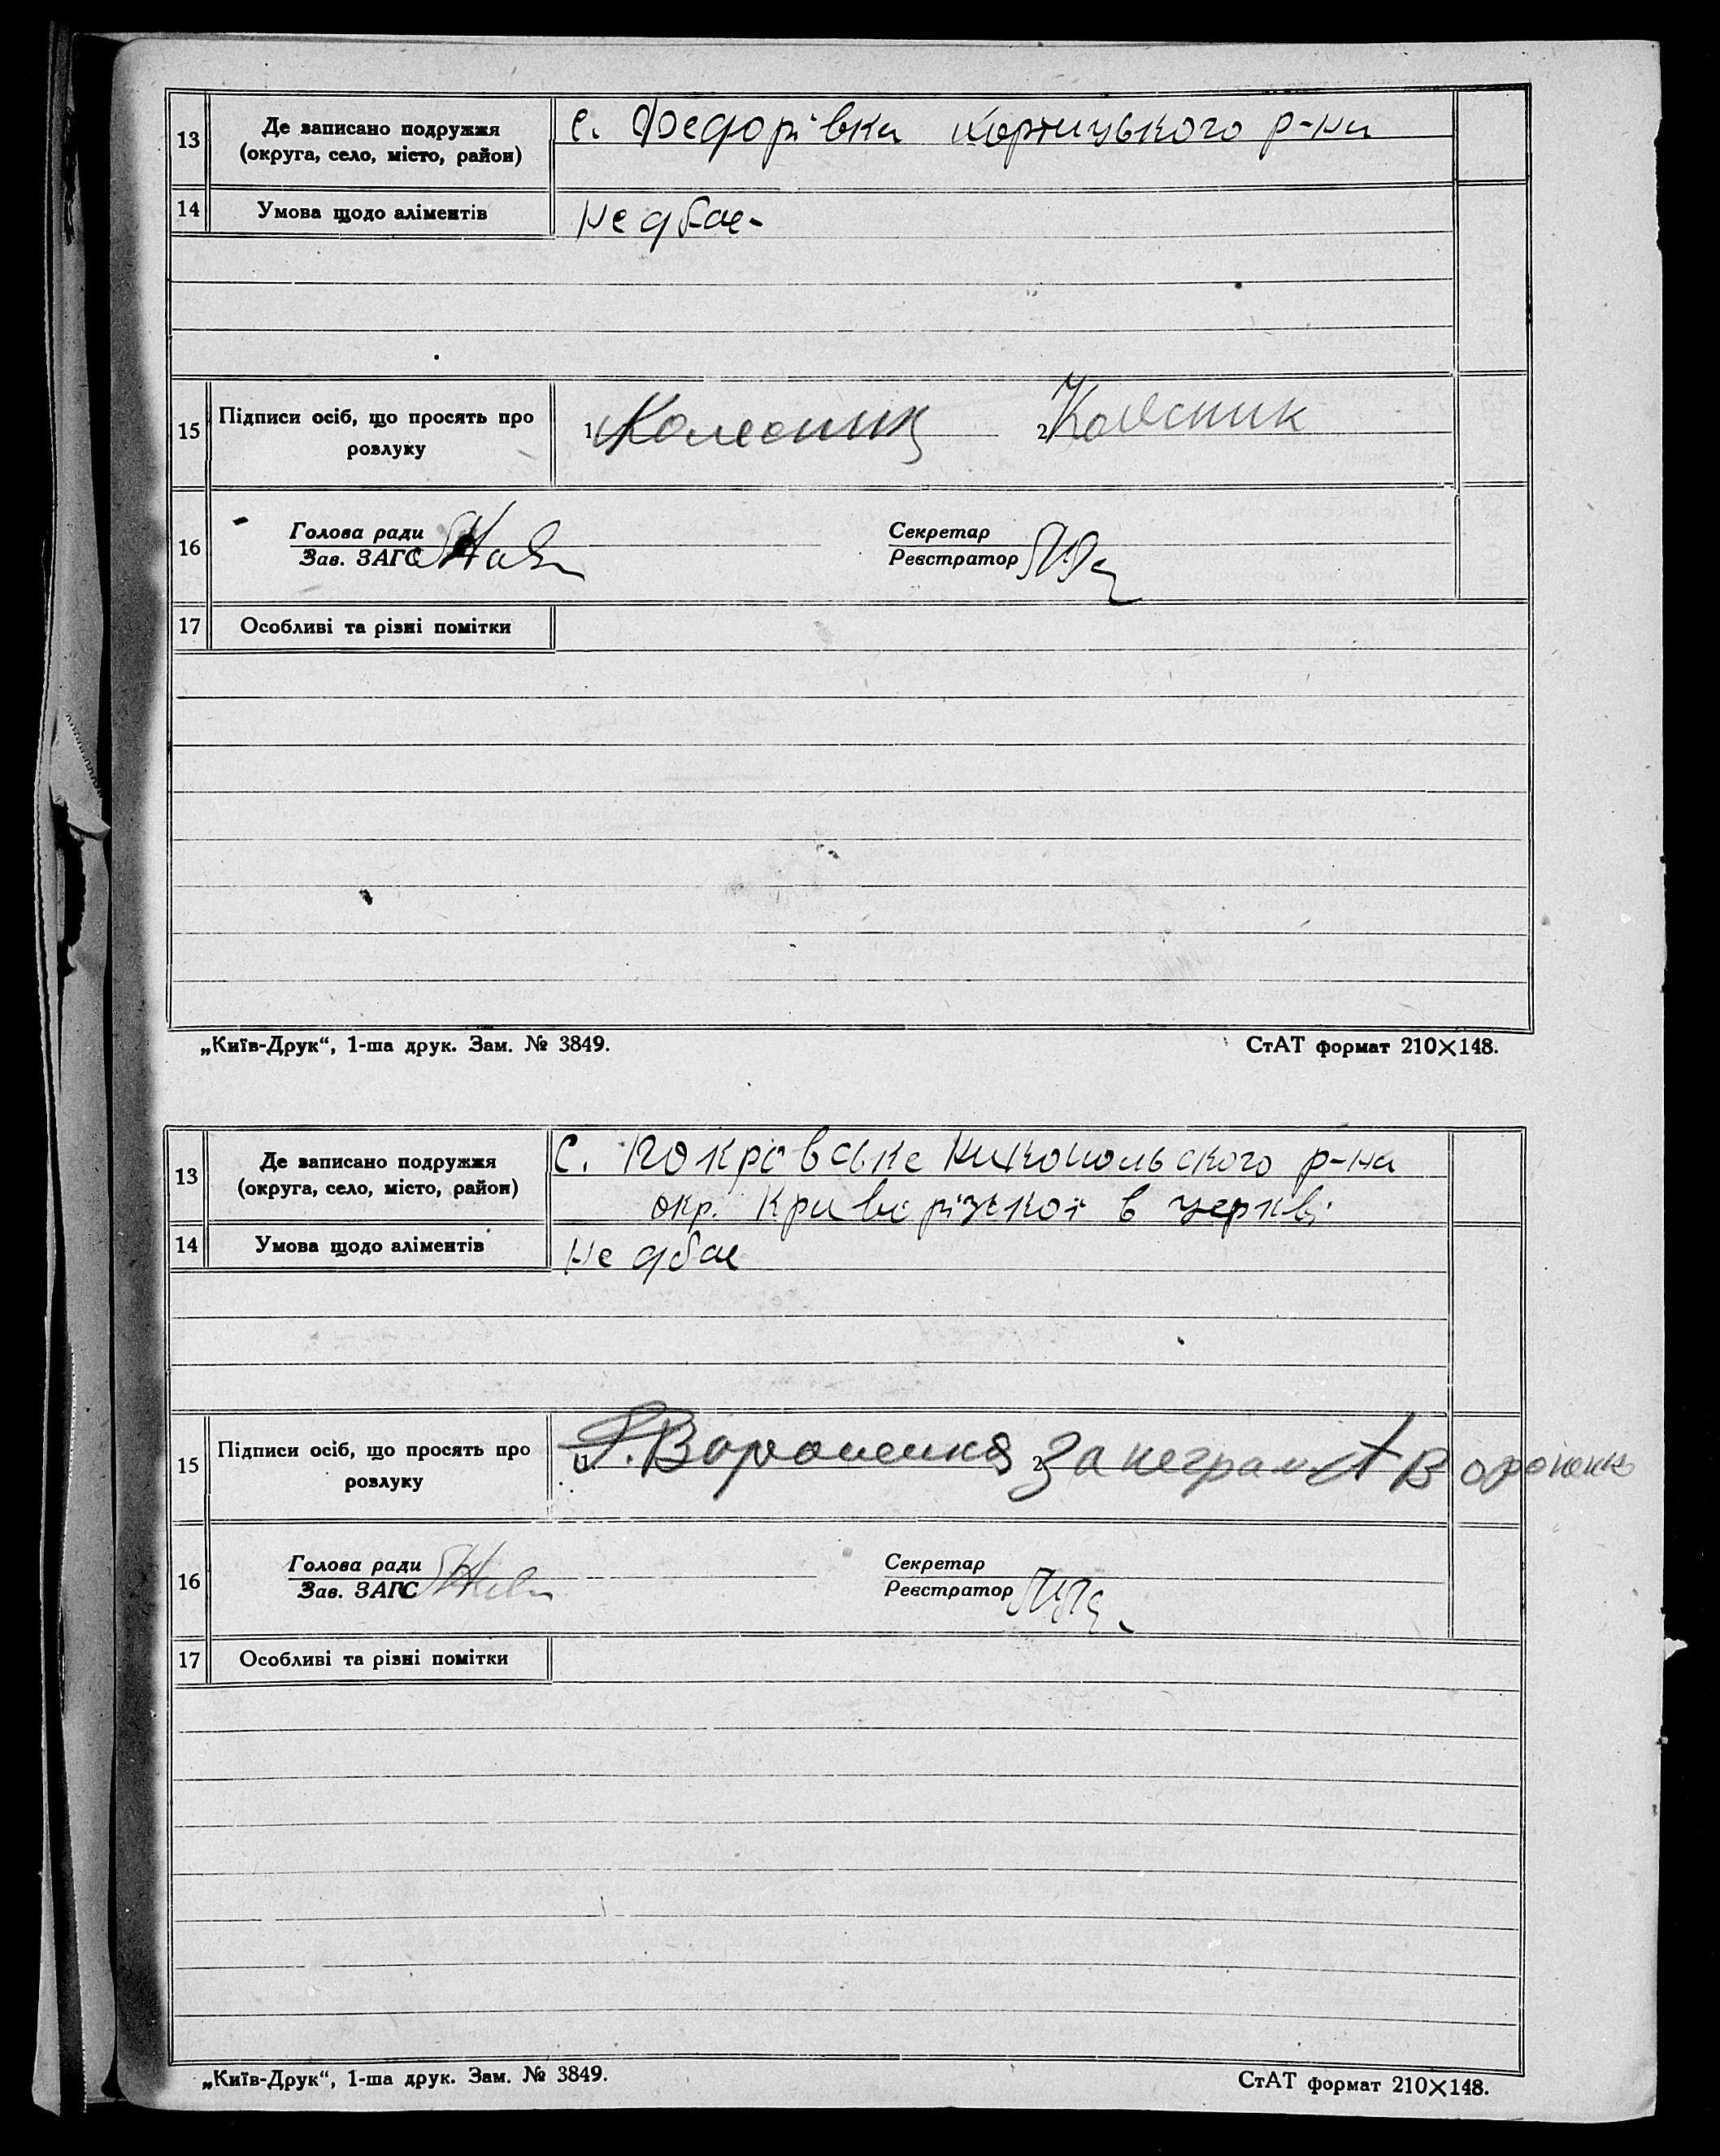 13
Де записано подружжя
(округа, село, місто, район)
с. Федорівка Хортицького р-на
14
Умова щодо аліментів
не дбає-
15
Підписи осіб, що просять про
розлуку
1. Колесник 2. Колесник
16
Голова ради
Зав. ЗАГС
Секретар
Реєстратор
17
Особливі та різні помітки
„Київ-Друк“, 1-ша друк. Зам. № 3849. СтАТ формат 210×148.
13
Де записано подружжя
(округа, село, місто, район)
с. Покровське Никопольского р-на
окр. Криворізької в церкві
14
Умова щодо аліментів
не дбає
15
Підписи осіб, що просять про
розлуку
1. Вороненко 2. За неграм А Вороненко
16
Голова ради
Зав. ЗАГС
Секретар
Реєстратор
17
Особливі та різні помітки
„Київ-Друк“, 1-ша друк. Зам. № 3849. СтАТ формат 210×148.